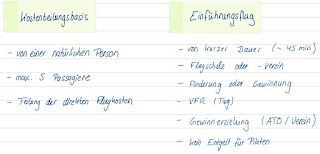 Kostenteilungsbasis
- von einer natürlichen Person
- max. 5 Passagiere
- Teilung der direkten Flugkosten
Einführungsflug
- von kurzer Dauer (~ 45 min)
- Flugschule oder -verein
- Förderung oder Gewinnung
- VFR (Tag)
- Gewinnerzielung (ATO / Verein)
- kein Entgelt für Piloten